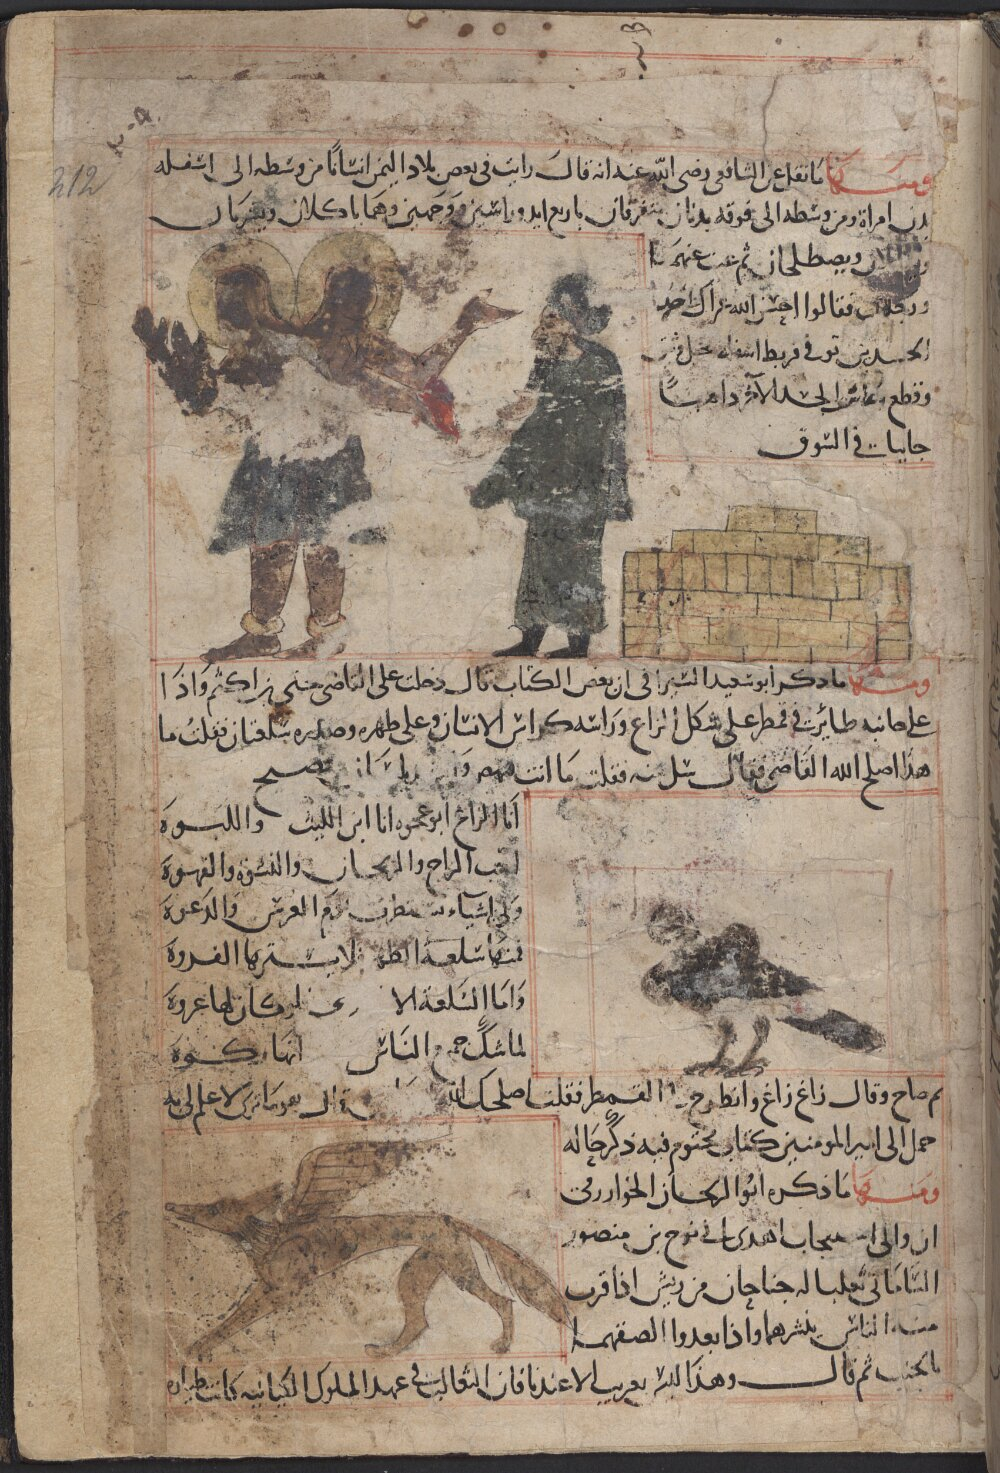 212
ومنها ما نقل عن الشافعي رضي الله عنه انه قال رايت في بعض بلاد اليمن انسانا من وسطه الى اسفله
بدن امراة ومن وسطه الى فوقه بدنان متفرقان باربع ايد وراسين ووجهين وهما ياكلان ويشربان
ويصطلحان ثم غبت عنهما
ورجعت فقالوا احسن الله عزاك احد
الجسدين توفي فربط اسفله بحبل
وقطع وعاش الجسد الآخر ذاهبا
جايا في السوق
ومنها ما ذكر ابو سعيد السيرافي ان بعض الكتاب قال دخلت على القاضي يحيى بن اكثم واذا
على جانبه طائر في قمطر على شكل الزاغ وراسه كراس الانسان وعلى ظهره وصدره سلعتان فقلت ما
هذا اصلح الله القاضي فقال سل منه فقلت ما انت فصيح
انا الزاغ ابو عجوه انا ابن الليث واللبوة
احب الراح والريحان والنشوة والقهوة
ولي اشياء يوم العرس والدعوة
فمنها سلعة الظهر لا تسترها الفروة
واما السلعة الا فلو كان لها عروة
لما شك جميع الناس انها ركوة
ثم صاح وقال زاغ زاغ وانطرح القمطر فقلت اصلحك الله قال هو ما ترى لا علم لي به
حمل الى امير المومنين كتاب مختوم فيه ذكر حاله
ومنها ما ذكره ابو الريحان الخوارزمي
ان والي اسبيجاب اهدى الى نوح بن منصور
الساماني ثعلبا له جناحان من ريش اذا قرب
منه الناس ينشرهما واذا بعدوا الصقهما
بالجنب ثم قال وهذا ليس بغريب الا عندنا فان الثعالب في عهد الملوك الكيانيه كانت طيارة